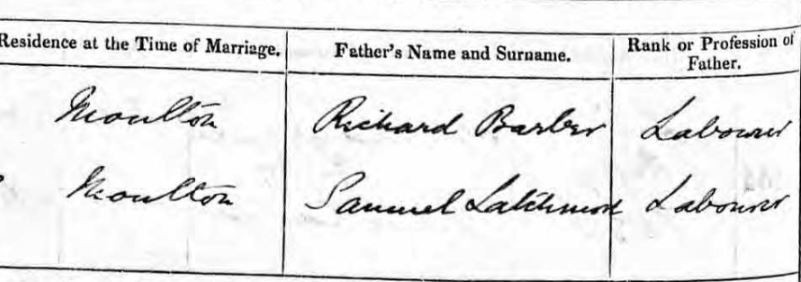 Residence at the Time of Marriage. Father's Name and Surname. Rank or Profession of Father.
Moulton Richard Barber Labourer
Moulton Samuel Latchmore Labourer